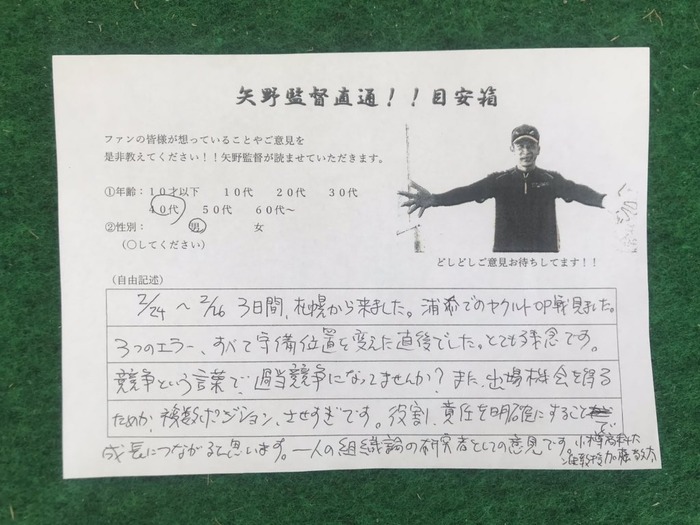 矢野監督直通！！目安箱
ファンの皆様が想っていることやご意見を
是非教えてください！！矢野監督が読ませていただきます。
①年齢：１０才以下　１０代　２０代　３０代
４０代　５０代　６０代～
②性別：　男　女
（○してください）
どしどしご意見お待ちしてます！！
（自由記述）
2/24 ～ 2/26 3日間、札幌から来ました。浦添でのヤクルトOP戦見ました。
3つのエラー、すべて守備位置を変えた直後でした。とても残念です。
競争という言葉で、過当競争になってませんか？また、出場機会を得る
ためか複数ポジション、させすぎです。役割、責任を明確にすることで
成長につながると思います。一人の組織論の研究者としての意見です。小樽商科大
准教授 加藤敬太